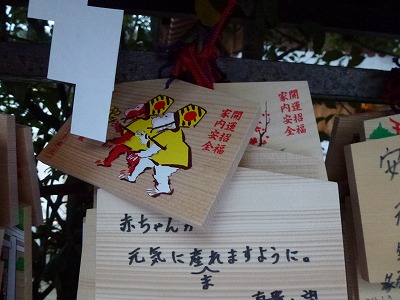 開運招福
家内安全
開運招福
家内安全
赤ちゃんが
元気に産れますように。
ま
安